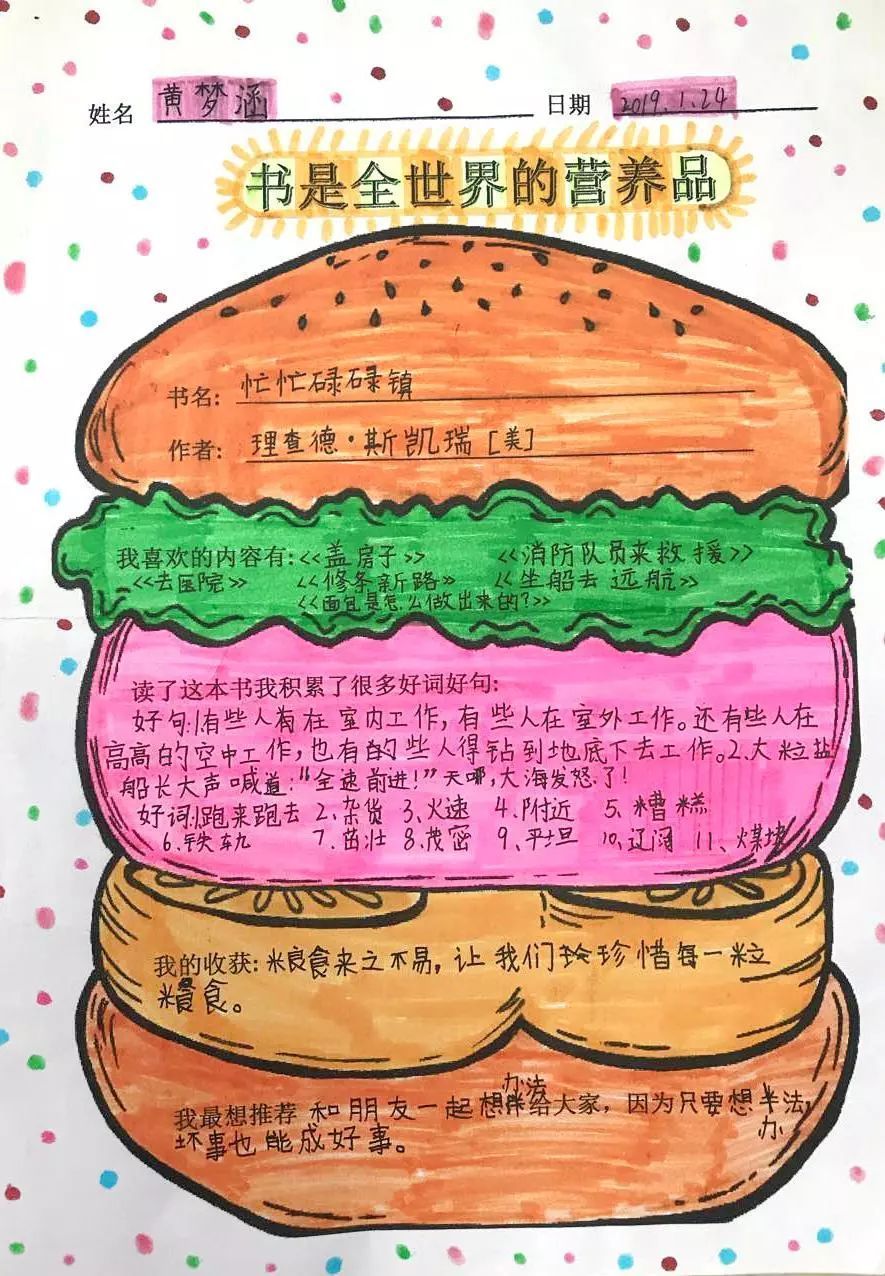 姓名 黄梦涵 日期 2019.1.24
书是全世界的营养品
书名: 忙忙碌碌镇
作者: 理查德·斯凯瑞[美]
我喜欢的内容有:<<盖房子>> <<消防队员来救援>>
<<去医院>> <<修条新路>> <<坐船去远航>>
<<面包是怎么做出来的?>>
读了这本书我积累了很多好词好句:
好句:1.有些人在室内工作,有些人在室外工作。还有些人在
高高的空中工作,也有的些人得钻到地底下去工作。2.大粒盐
船长大声喊道:“全速前进!”天哪,大海发怒了!
好词:1.跑来跑去 2、杂货 3、火速 4、附近 5、糟糕
6、铁轨 7、茁壮 8、茂密 9、平坦 10、辽阔 11、煤块
我的收获:粮食来之不易,让我们珍惜每一粒
粮食。
办法
我最想推荐 和朋友一起想给大家,因为只要想半法,
坏事也能成好事。 办